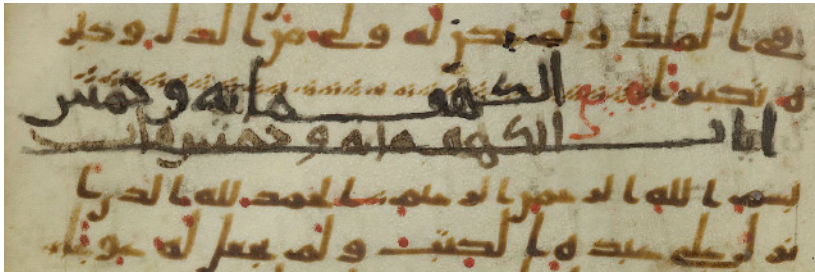 في الملك ولم يكن له ولي من الذل وكبر
ه تكبيرا الكهف مايه وخمس
ايات الكهف مايه وخمس ايات
بسم الله الرحمن الرحيم الحمد لله الذي ا
نزل على عبده الكتب ولم يجعل له عوجا